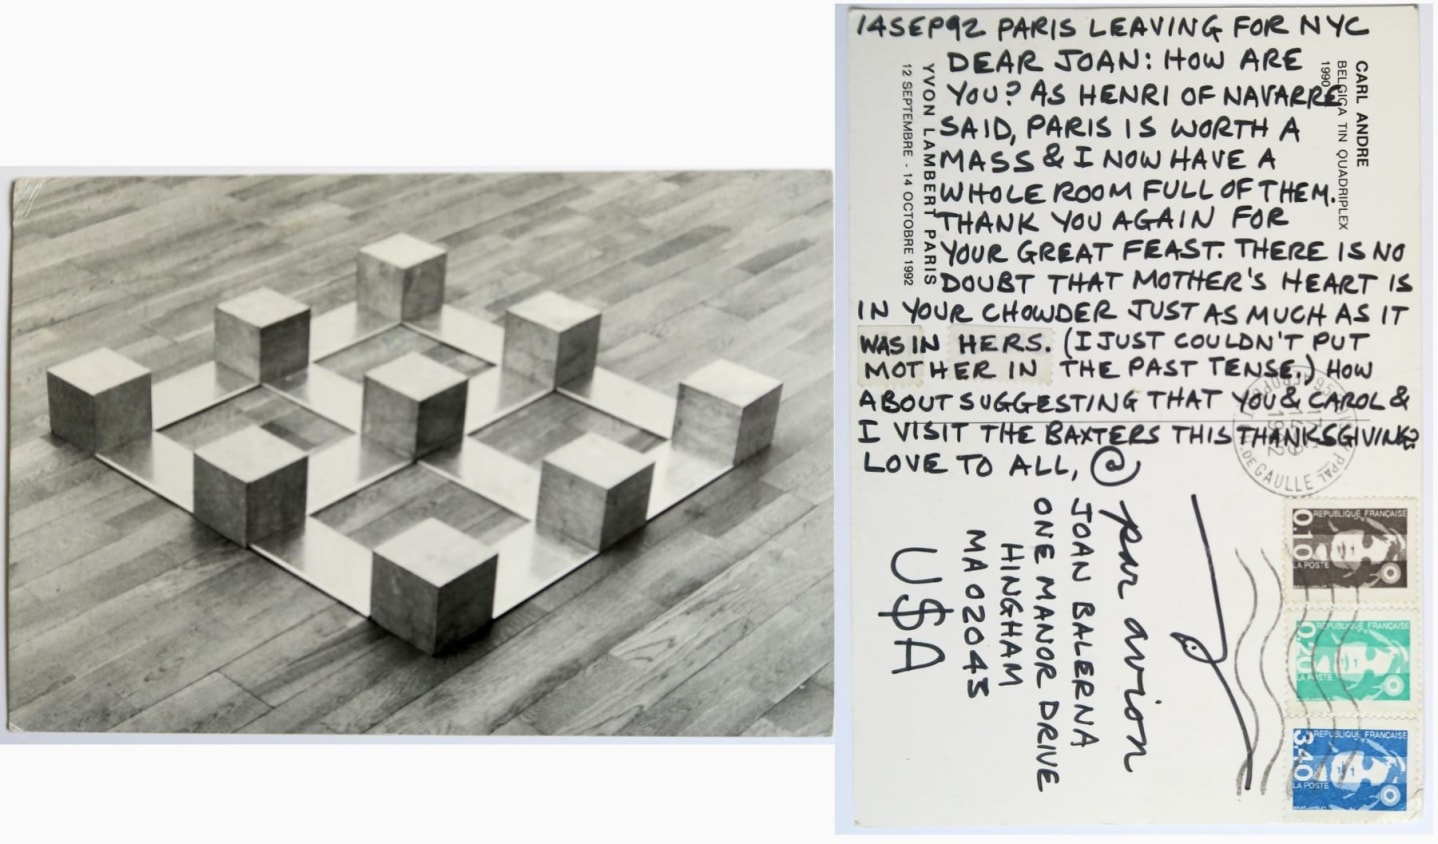 14SEP92 PARIS LEAVING FOR NYC
DEAR JOAN: HOW ARE
YOU? AS HENRI OF NAVARRE
SAID, PARIS IS WORTH A
MASS & I NOW HAVE A
WHOLE ROOM FULL OF THEM.
THANK YOU AGAIN FOR
YOUR GREAT FEAST. THERE IS NO
DOUBT THAT MOTHER'S HEART IS
IN YOUR CHOWDER JUST AS MUCH AS IT
WAS IN HERS. (I JUST COULDN'T PUT
MOTHER IN THE PAST TENSE.) HOW
ABOUT SUGGESTING THAT YOU & CAROL &
I VISIT THE BAXTERS THIS THANKSGIVING?
LOVE TO ALL, @
CARL ANDRE
BELGICA TIN QUADRIPLEX
1990
YVON LAMBERT PARIS
12 SEPTEMBRE - 14 OCTOBRE 1992
par avion
JOAN BALERNA
ONE MANOR DRIVE
HINGHAM
MA 02043
U$A
DE GAULLE PPAL
1992
0,10 REPUBLIQUE FRANÇAISE
LA POSTE
0,20 REPUBLIQUE FRANÇAISE
LA POSTE
3,40 REPUBLIQUE FRANÇAISE
LA POSTE